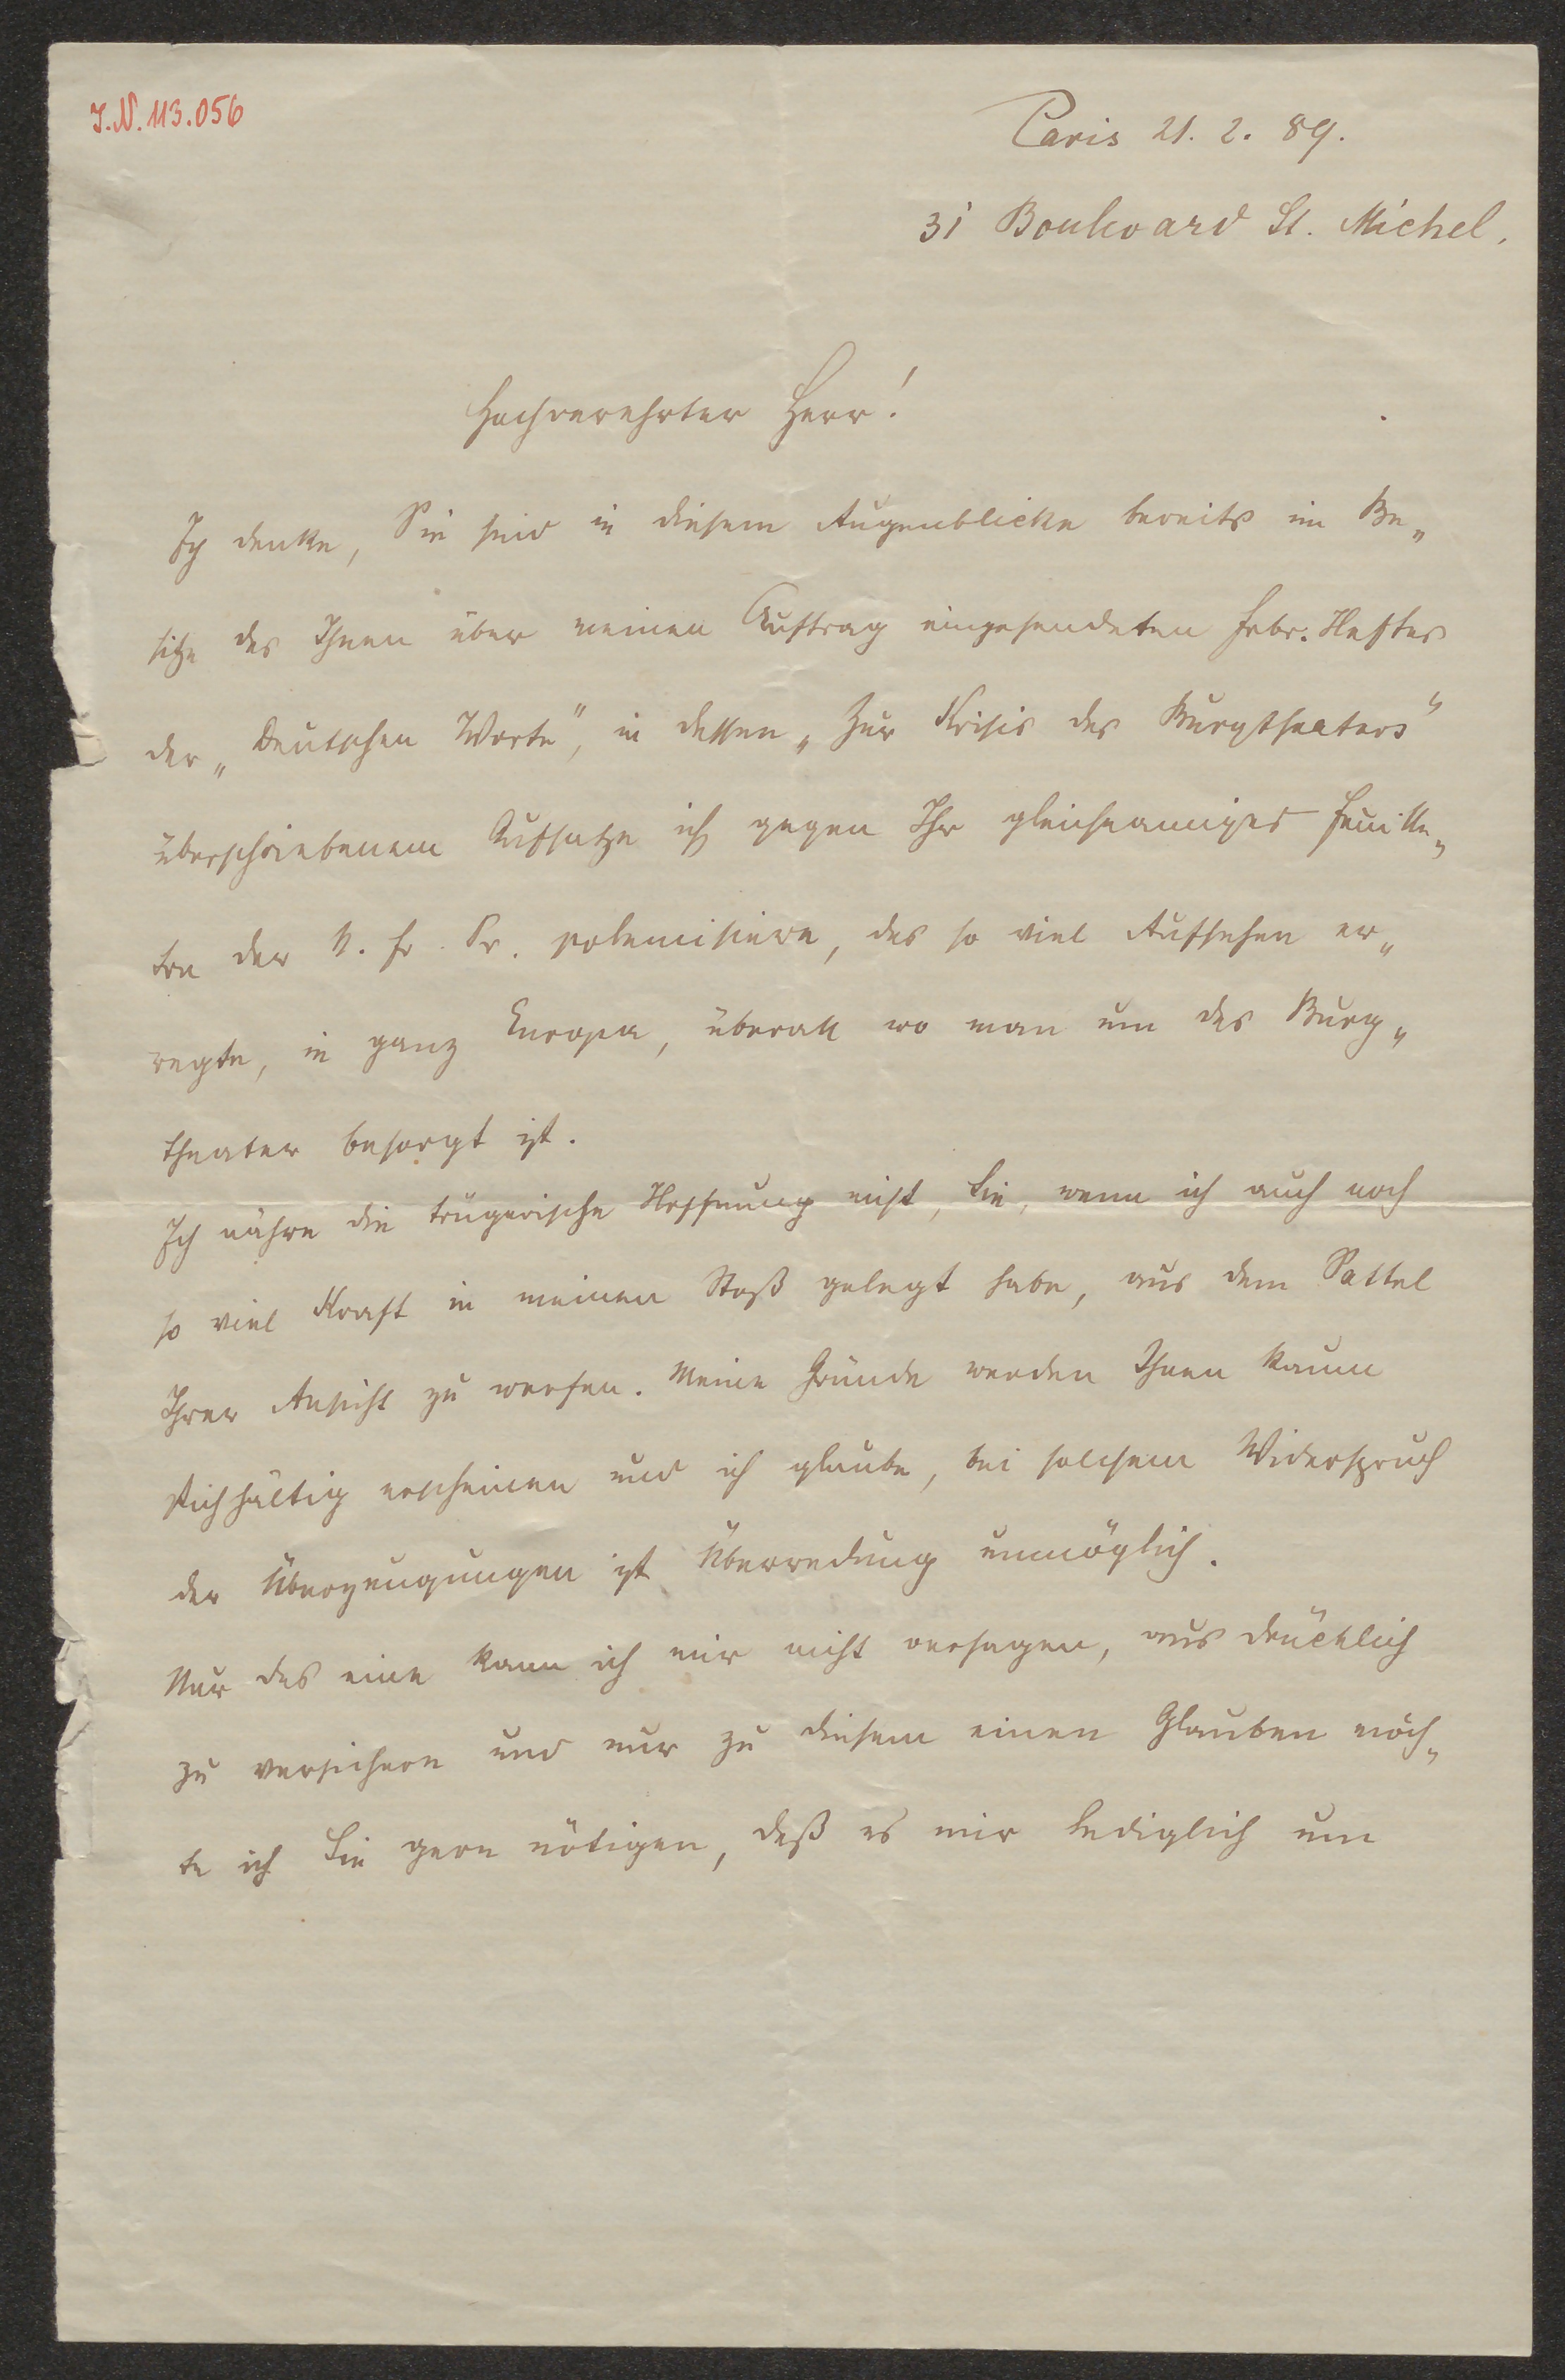 J.N. 113.056
Paris 21. 2. 89.
31 Boulevard St. Michel.
Hochverehrter Herr!
Ich denke, Sie sind in diesem Augenblicke bereits im Be„
sitze des Ihnen über meinen Auftrag eingesendeten Febr. Heftes
der „Deutschen Worte“, in dessen „Zur Krisis des Burgtheaters“
überschriebenem Aufsatze ich gegen Ihr gleichnamiges Feuille„
ton der N. Fr. Pr. polemisiere, das so viel Aufsehen er„
regte, in ganz Europa, überall wo man um das Burg„
theater besorgt ist.
Ich nähre die trügerische Hoffnung nicht, Sie, wenn ich auch noch
so viel Kraft in meinen Stoß gelegt habe, aus dem Sattel
Ihrer Ansicht zu werfen. Meine Gründe werden Ihnen kaum
stichhältig erscheinen und ich glaube, bei solchem Widerspruch
der Überzeugungen ist Überredung unmöglich.
Nur das eine kann ich mir nicht versagen, ausdrücklich
zu versichern und nur zu diesem einen Glauben möch„
te ich Sie gern nötigen, daß es mir lediglich um